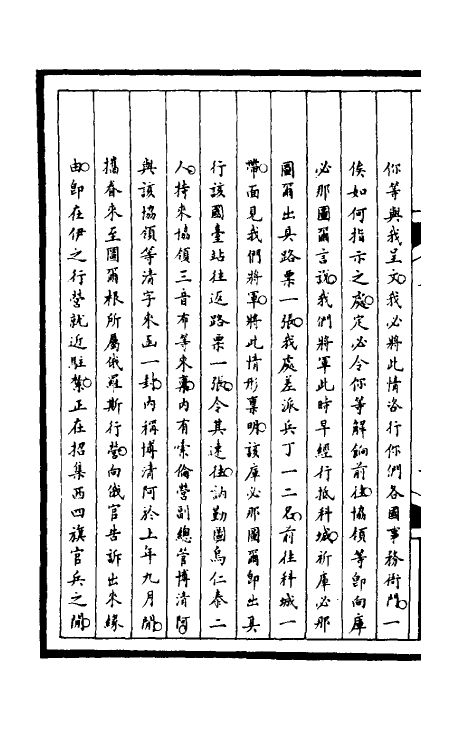 你等與我呈文我必將此情洛行你們各國事務衙門一
俟如何指示之處定必令你等解餉前往協領等卽向庫
必那圖爾言說我們將軍此時早經行抵科城祈庫必那
圖爾出具路票一張我處差派兵丁一二名前往科城一
帶面見我們將軍將此情形稟明該庫必那圖爾卽出具
行該國臺站往返路票一張令其速往訥勤圖烏仁泰二
人持來協領三音布等來稟內有索倫營副總管博清阿
與該協領等清字來函一封內稱博清阿於上年九月間
攜眷來至圖爾根所屬俄羅斯行營向俄官告訴出來緣
由卽在伊之行營就近駐紮正在招集西四旗官兵之間